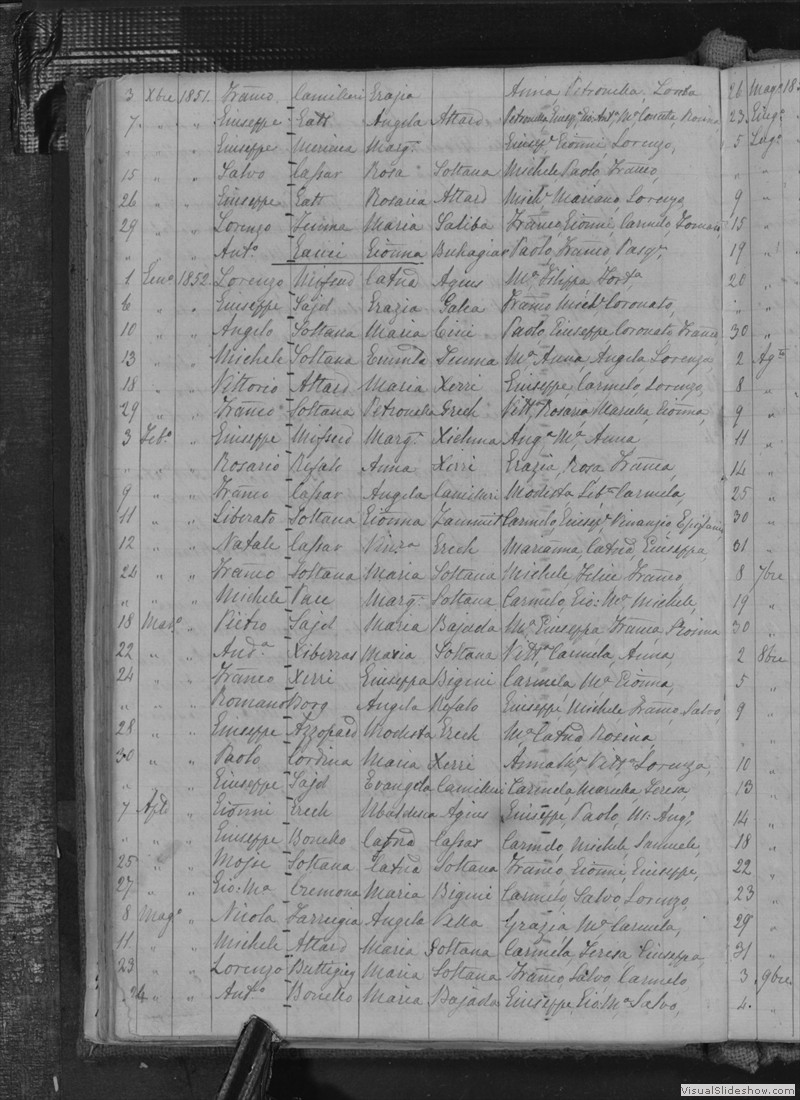 3 Xbre 1851. Franco Camilleri Grazia Anna Petronella, Lorda 26 Mago 185
7 " " Giuseppe Gatt Angela Attard Petronilla Gius. Ant. Ma Concetta Rosina 23 Giugo
" " " Giuseppe Marg. Giuse. Gionni Lorenzo, 5 Lugo
15 " " Salvo Cassar Rosa Soltana Michele Paolo, Franco, " "
26 " " Giuseppe Gatt Rosaria Attard Miche. Mariano Lorenzo 9 "
29 " " Lorenzo Maria Saliba Franco, Gionni, Carmelo, 15 "
" " " Anto. Gauci Gionna Buhagiar Paolo, Franco, Pasq. 19 "
1 Geno. 1852. Lorenzo Mifsud Catna Agius Ma. Filippa 20 "
6 " " Giuseppe Said Grazia Galea Franco Miche. Coronato, " "
10 " " Angelo Soltana Maria Cini Paolo Giuseppe Coronato Franco 30 "
13 " " Michele Soltana Maria Ma. Anna, Angela Lorenzo, 2 Ago.
18 " " Vittorio Attard Maria Xerri Giuseppe, Carmelo, Lorenzo, 8 "
29 " " Franco Soltana Petronella Grech Vitta. Rosaria Marielta, Gionna, 9 "
3 Feb. " Giuseppe Mifsud Marg. Xiehma Ang. Ma. Anna 11 "
" " " Rosario Refalo Anna Xerri Grazia, Rosa Franca, 14 "
9 " " Franco Cassar Angela Camilleri Modesta Carmela, 25 "
11 " " Liberato Soltana Gionna Zammit Carmelo Giuse. Venanzio 30 "
12 " " Natale Cassar Vinza Grech Marianna, Catna Giuseppa, 31 "
24 " " Franco Soltana Maria Soltana Michele Felice Franco, 8 7bre
" " " Michele Pace Marg. Soltana Carmelo, Gio: Ma. Michele, 19 "
18 Marzo " Pietro Said Maria Bajada Ma. Giuseppa Franca Rosina 30 "
22 " " And. Xiberras Maria Soltana Vitta. Carmela, Anna, 2 8bre
24 " " Franco Xerri Giuseppa Bigeni Carmela Ma. Gionna, 5 "
" " " Romano Borg Angela Refalo Giuseppe Michele Franco, Salvo, 9 "
28 " " Giuseppe Azzopard Modesta Grech Ma. Catna Rosina " "
30 " " Paolo Cordina Maria Xerri Anna Ma. Vitta. Lorenza, 10 "
" " " Giuseppe Said Evangela Camilleri Carmela, Marielta, Teresa, 13 "
7 Aple " Gionni Grech Ubaldesca Agius Giuseppe, Paolo, M: Ang. 14 "
" " " Giuseppe Bonello Catna Cassar Carmelo, Michele Samuele, 18 "
25 " " Mosse Soltana Catna Soltana Franco, Gionni, Giuseppe, 22 "
27 " " Gio: Ma. Cremona Maria Bigeni Carmelo, Salvo Lorenzo 23 "
8 Mago. " Nicola Farrugia Angela Vella Grazia Ma. Carmela, 29 "
11 " " Michele Attard Maria Soltana Carmela Teresa Giuseppa, 31 "
23 " " Lorenzo Buttigieg Maria Soltana Franco Salvo, Carmelo 3 9bre
24 " " Anto. Bonello Maria Bajada Giuseppe, Gio. Ma. Salvo, 4 "
VisualSlideshow.com